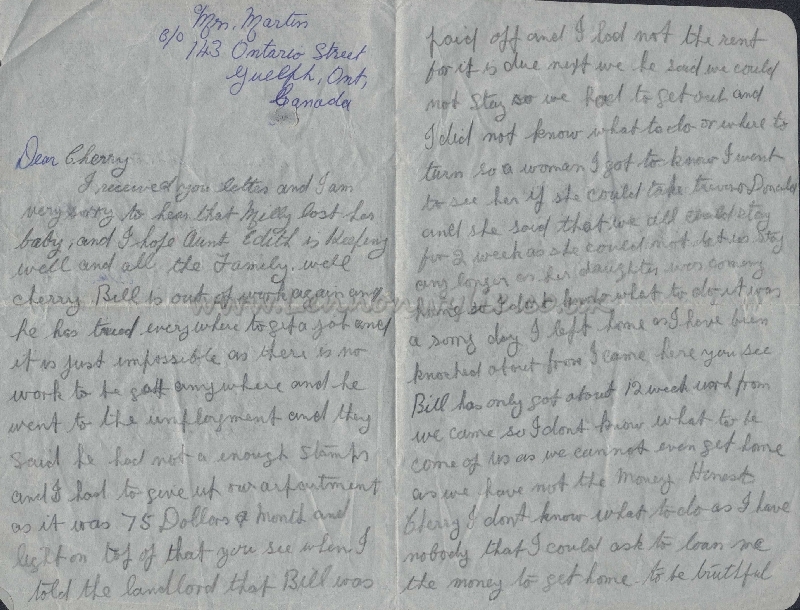 Mrs. Martin
c/o 143 Ontario Street
Guelph, Ont,
Canada
Dear Cherry
I received you letter and I am
very sorry to hear that Milly lost her
baby, and I hope Aunt Edith is keeping
well and all the Family. well
cherry Bill is out of work again and
he has tried everywhere to get a job and
it is just impossible as there is no
work to be gott anywhere and he
went to the unployment and they
said he had not a enough stamps
and I had to give up our apartment
as it was 75 Dollars a month and
light on top of that you see when I
told the landlord that Bill was
paid off and I had not the rent
for it is due next we he said we could
not stay so we had to get out and
I did not know what to do or where to
turn so a woman I got to know I went
to see her if she could take trevor Donald
and she said that we all could stay
for 2 week as she could not let us stay
any longer as her daughter was coming
home so I dont know what to do it was
a sorry day I left home as I have been
knocked about from I came here you see
Bill has only got about 12 week work from
we came so I dont know what to be
come of us as we cannot even get home
as we have not the money Honest
Cherry I don't know what to do as I have
nobody that I could ask to loan me
the money to get home to be truthful